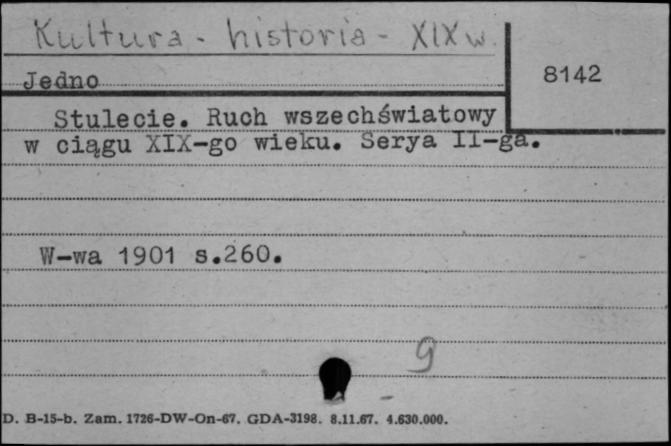 Kultura - historia - XIX w.
8142
Jedno
Stulecie. Ruch wszechświatowy
w ciągu XIX-go wieku. Serya II-ga.
W-wa 1901 s.260.
g
D. B-15-b. Zam. 1726-DW-On-67. GDA-3198. 8.11.67. 4.630.000.